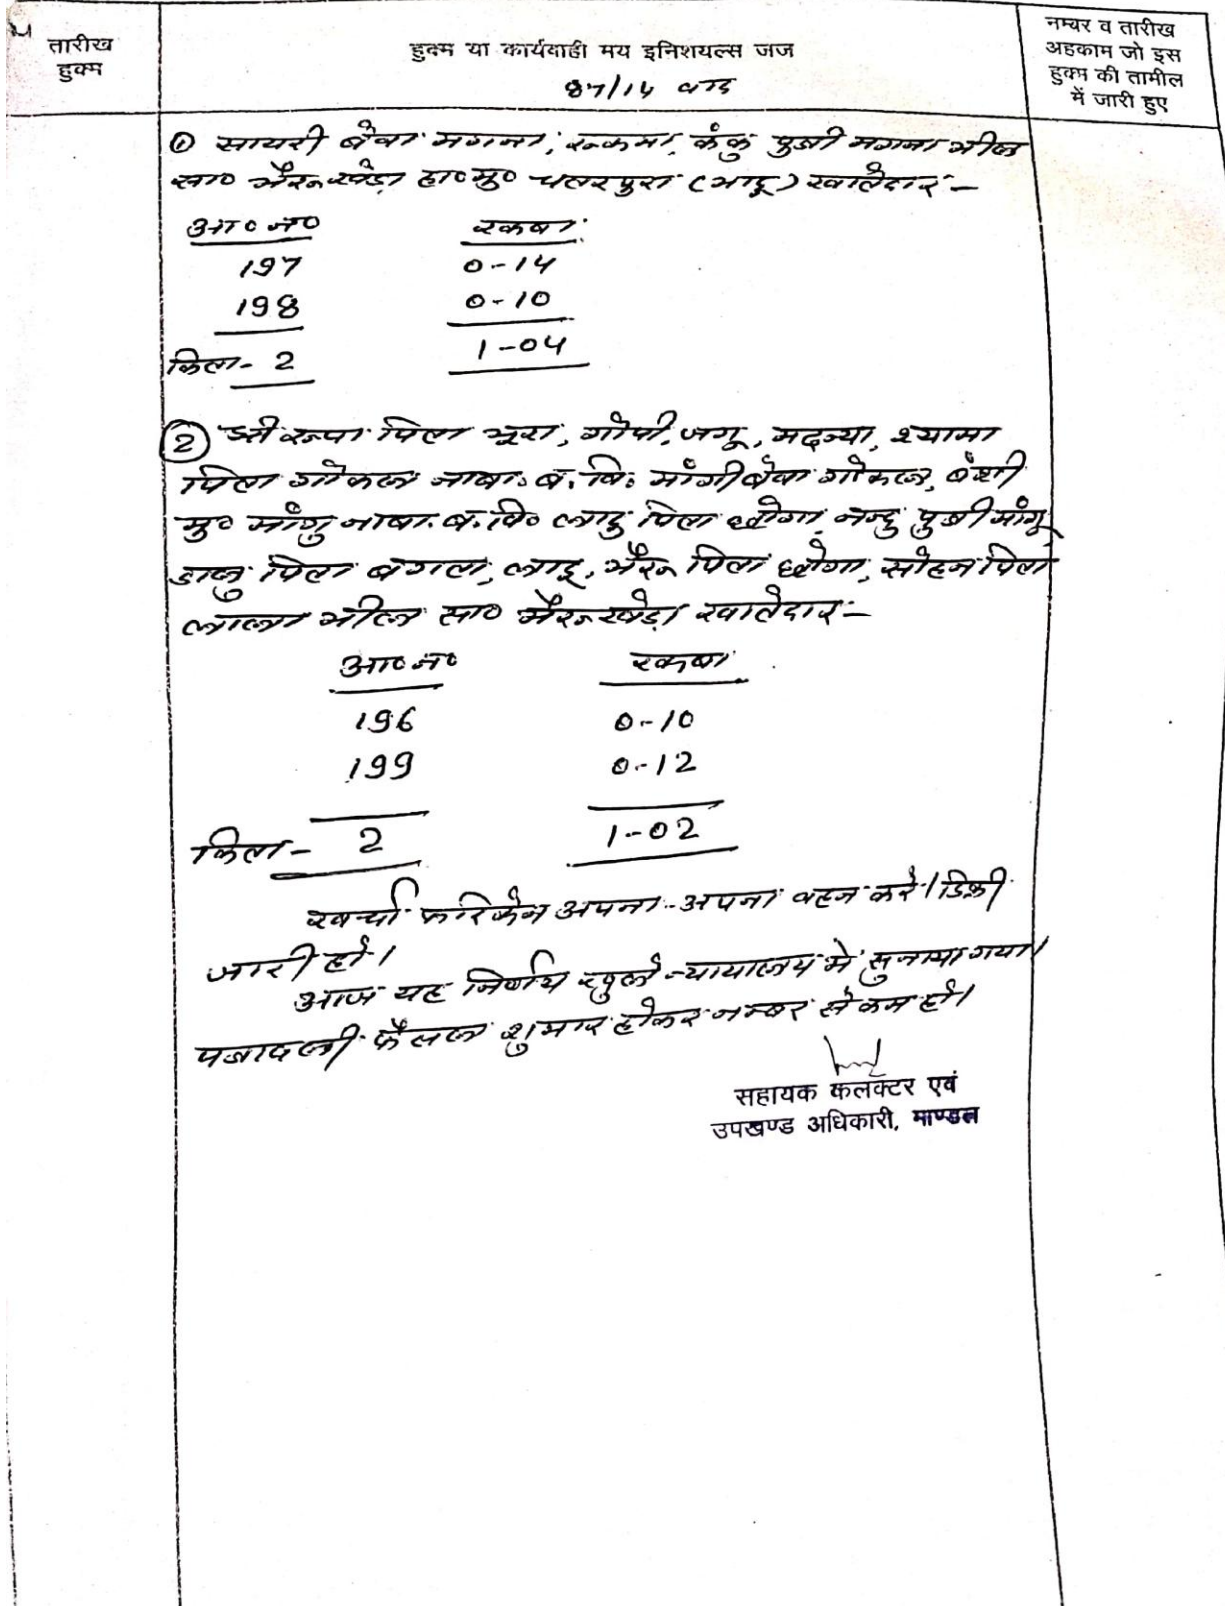 तारीख
हुक्म
हुक्म या कार्यवाही मय इनिशयल्स जज
87/14 वाद
नम्बर व तारीख
अहकाम जो इस
हुक्म की तामील
में जारी हुए
① सायरी बेवा मगना, रूकमा, कंकु पुत्री मगना भील
सा० भैरूखेड़ा हा०मु० चतरपुरा (भादू) खातेदार :-
आ०न० रकबा
197 0-14
198 0-10
किता- 2 1-04
② रूपा पिता भूरा, गोपी, जगू, मदन्या, श्यामा
पिता गोकल नाबा. ब. वि. मांगी बेवा गोकल, बंशी
मु० मांगु नाबा. ब. वि० लादु पिता छोगा, नन्दु पुत्री मांगू
डालु पिता बगता, लादू, भैरू पिता छोगा, सोहन पिता
लाला भील सा० भैरूखेड़ा खातेदार :-
आ०न० रकबा
196 0-10
199 0-12
किता- 2 1-02
खर्चा फरिकेन अपना-अपना वहन करे। डिक्री
जारी हो।
आज यह निर्णय खुले न्यायालय मे सुनाया गया।
पत्रावली फैसल शुमार होकर नम्बर से कम हो।
सहायक कलक्टर एवं
उपखण्ड अधिकारी, माण्डल